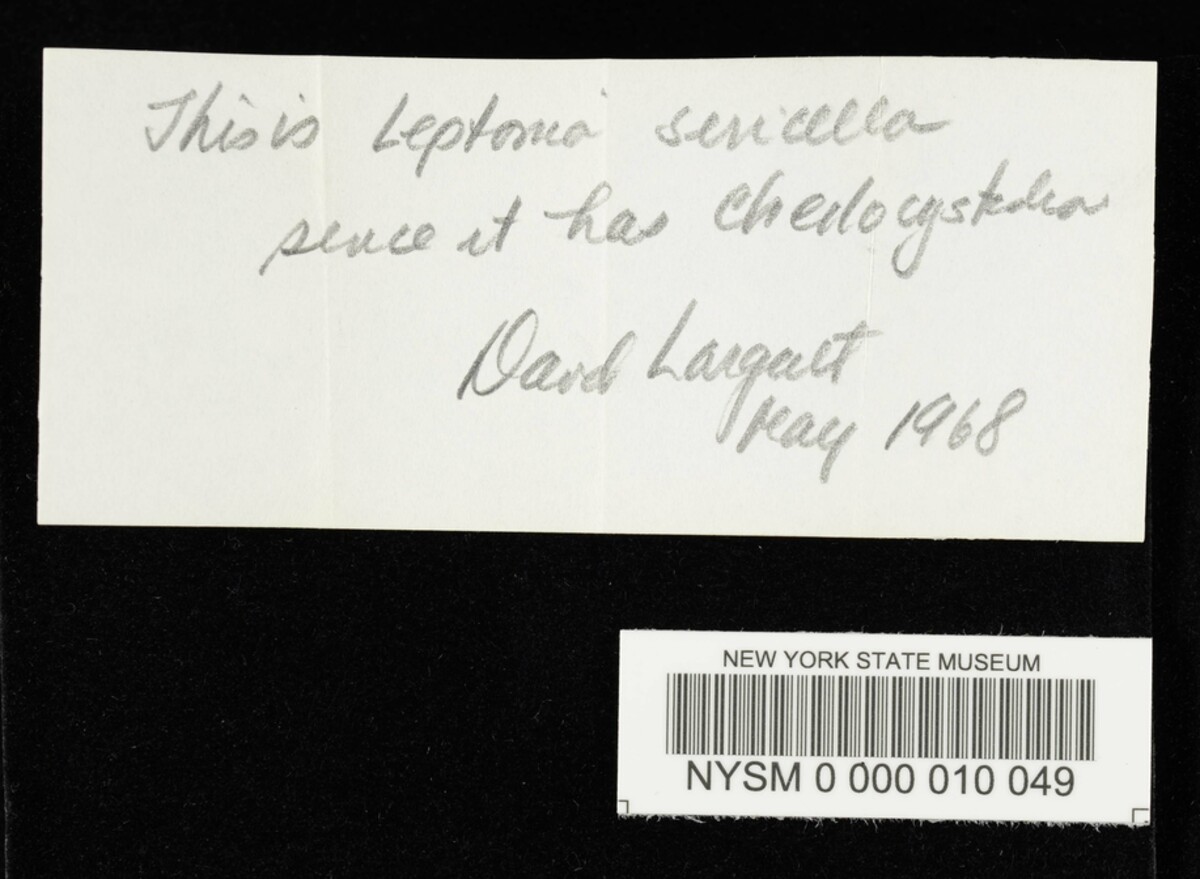 This is Leptonia sericella
since it has Cheilocystidia
David Largent
May 1968
NEW YORK STATE MUSEUM
NYSM 0 000 010 049